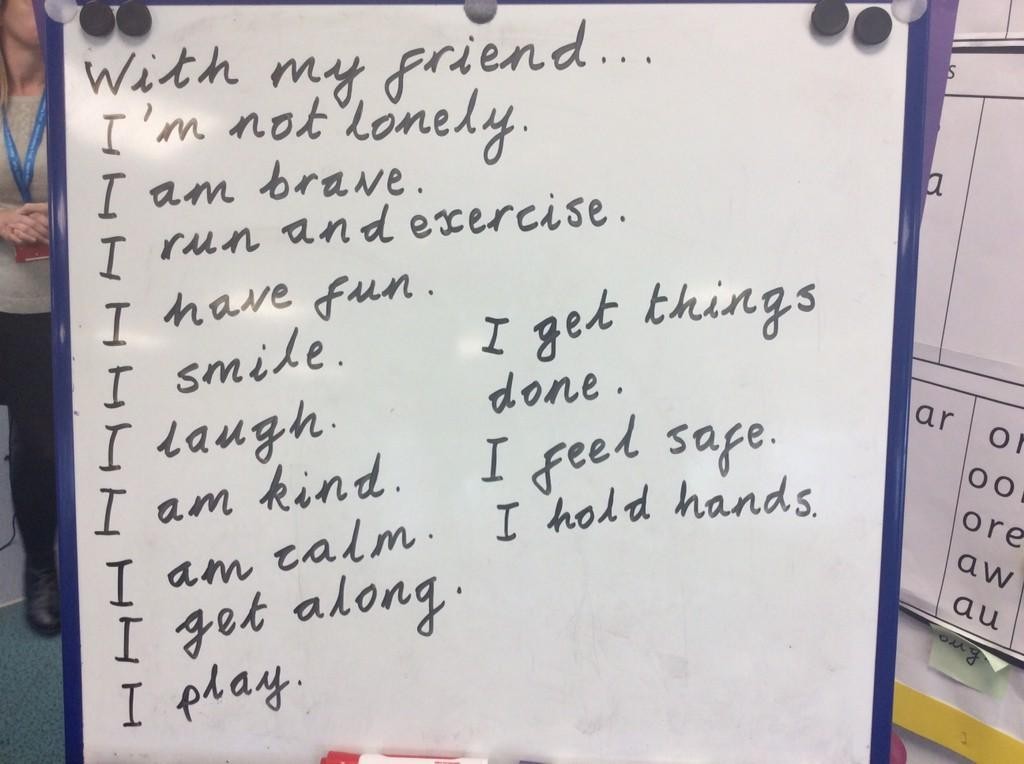 With my friend...
I'm not lonely.
I am brave.
I run and exercise.
I have fun.
I smile.
I laugh.
I am kind.
I am calm.
I get along.
I play.
I get things
done.
I feel safe.
I hold hands.
s
a
ar
or
oo
ore
aw
au